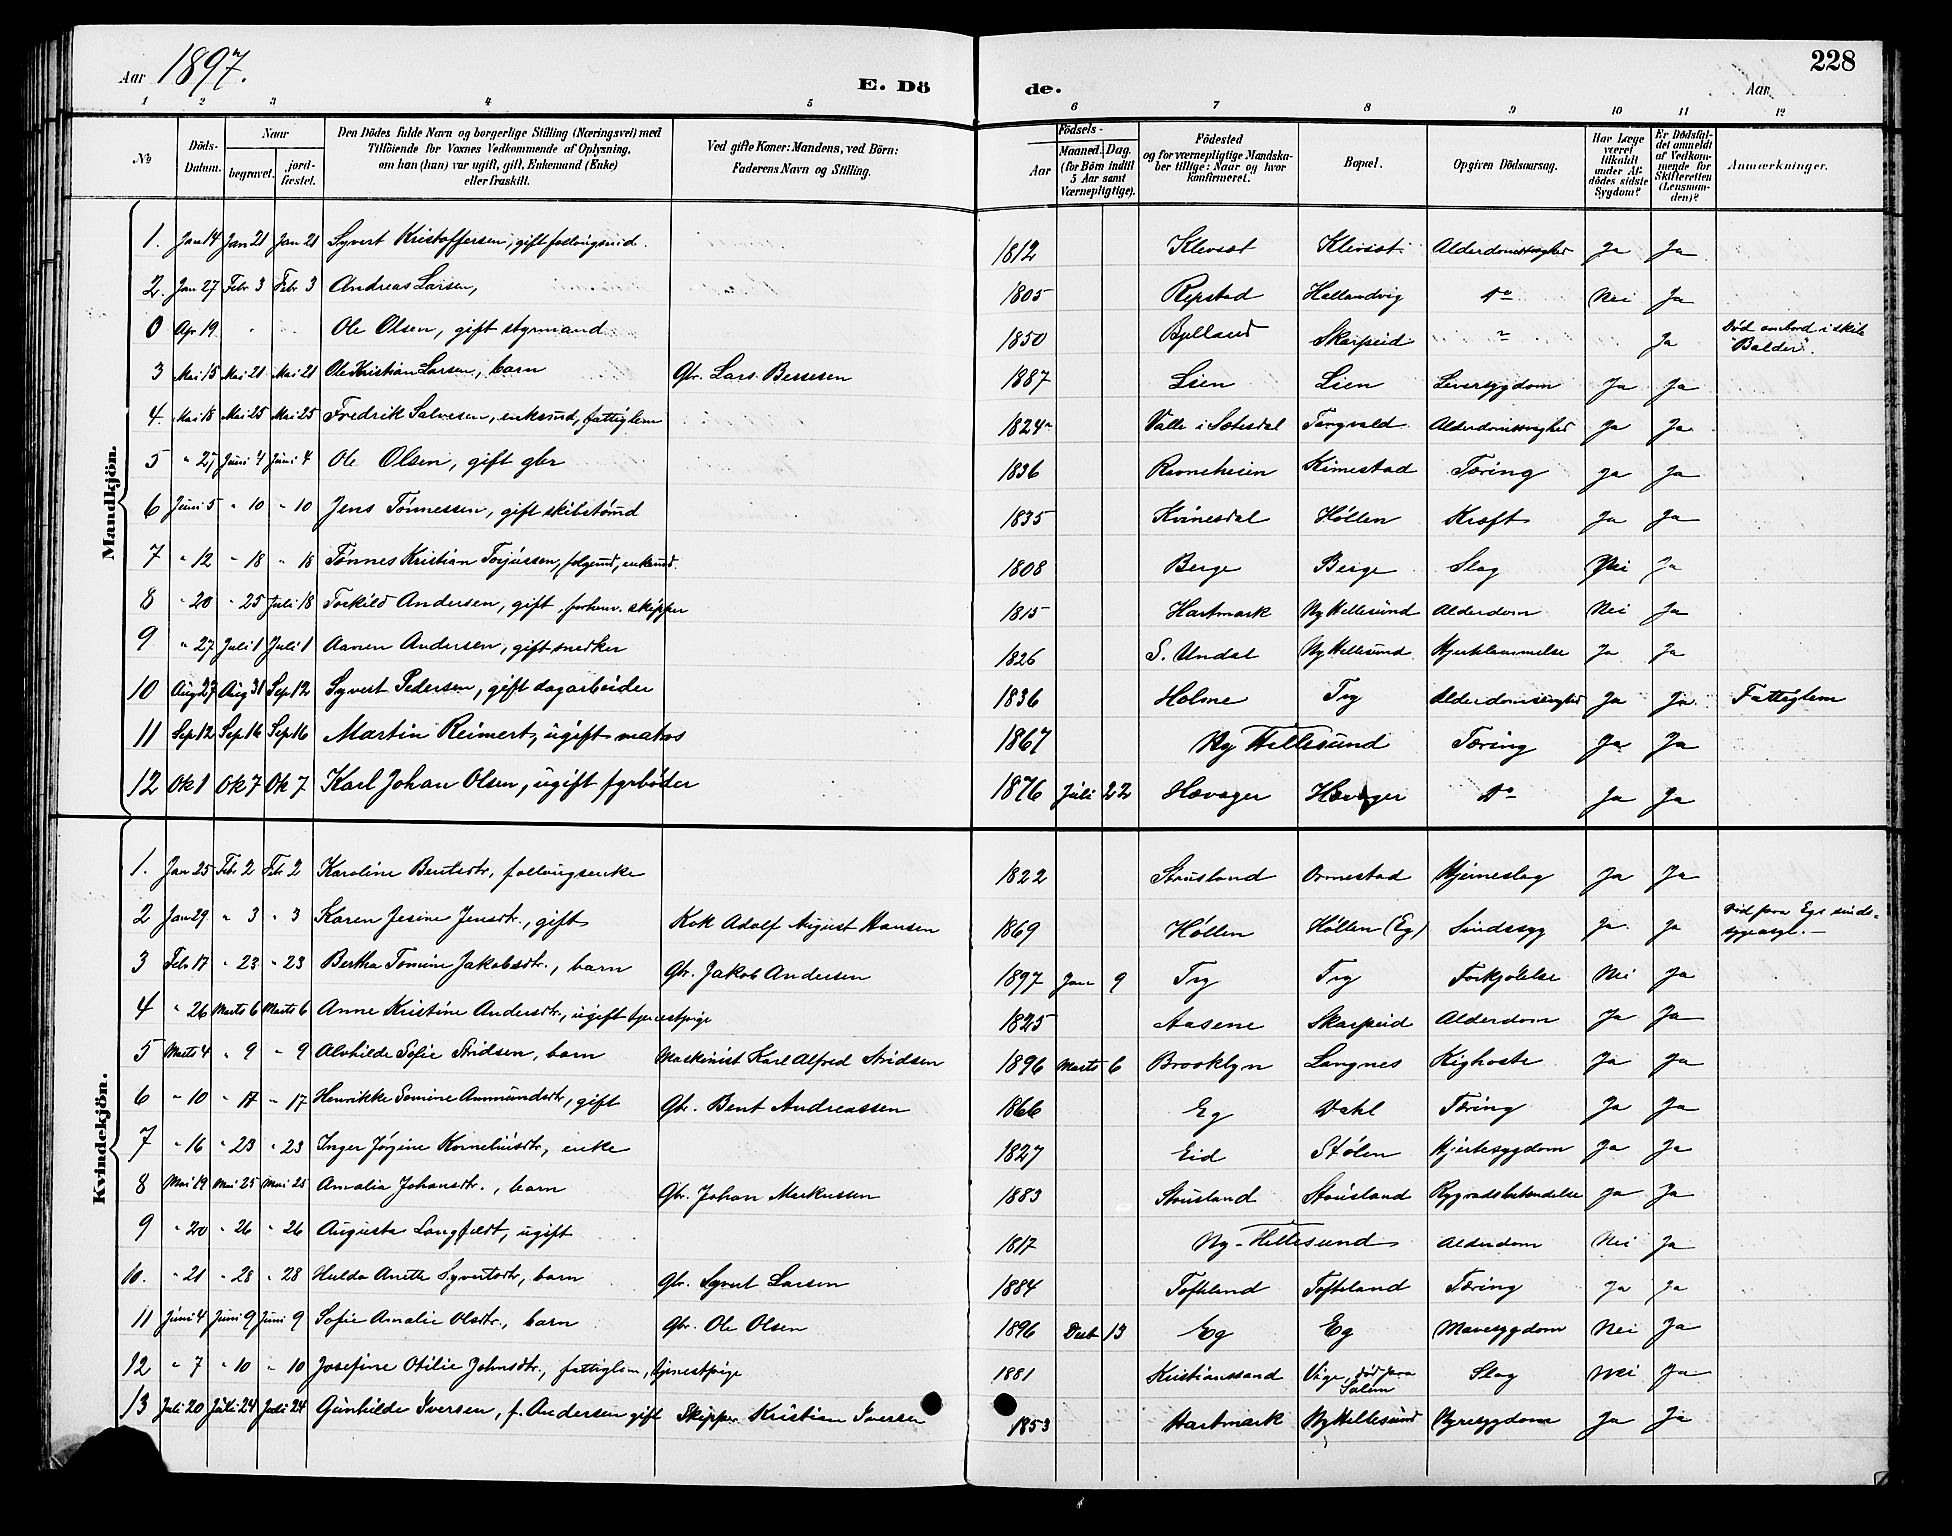 Aar 1897.
E. Dö
de.
Aar
228
1 2 3 4 5 6 7 8 9 10 11 12
No
Döds-Datum.
Naar
begravet.
jord-fæstet.
Den Dödes fulde Navn og borgerlige Stilling (Næringsvei) med
Tilföiende for Voxnes Vedkommende af Oplysning,
om han (hun) var ugift, gift, Enkemand (Enke)
eller fraskilt.
Ved gifte Koner: Mandens, ved Börn:
Faderens Navn og Stilling.
Födsels-
Aar
Maaned. Dag.
(for Börn indtil
5 Aar samt
Værnepligtige).
Födested
og for værnepligtige Mandska-
ber tillige: Naar og hvor
konfirmeret.
Bopæl.
Opgiven Dödsaarsag.
Har Læge
været
tilkaldt
under Af-
dödes sidste
Sygdom?
Er Dödsfal-
det anmeldt
af Vedkom-
mende for
Skifteretten
(Lensman-
den)?
Anmærkninger.
Mandkjön.
1. Jan 14 Jan 21 Jan 21 Syvert Kristoffersen, gift 1812 Klevset Klevset Alderdomssvaghed Ja Ja
2. Jan 27 Febr 3 Febr 3 Andreas Larsen, 1805 Repstad Hallandvig do Nei Ja
0 Apr 19. Ole Olsen, gift styrmand 1850 Bylland Skarpeid " Ja Død ombord i skib "Balder".
3 Mai 15 Mai 21 Mai 21 Ole Kristian Larsen, barn Gbr. Lars Bessesen 1887 Lien Lien Leversygdom Ja Ja
4. Mai 18 Mai 25 Mai 25 Fredrik Salvesen, enkemd, fattiglem 1824 Valle i Sætesdal Tangvald Alderdomssvaghed Ja Ja
5 " 27 Juni 4 Juni 4 Ole Olsen, gift gbr 1836 Ravneheien Kimestad Tæring Ja Ja
6 Juni 5 " 10 " 10 Jens Tønnessen, gift skibstømd 1835 Kvinesdal Høllen Kræft Ja Ja
7 " 12 " 18 " 18 Tønnes Kristian Torjussen, folgemd, enkemd. 1808 Berge Berge Slag Nei Ja
8 " 20 " 25 Juli 18 Torkild Andersen, gift, forhenv. skipper 1815 Hartmark Ny Hellesund Alderdom Nei Ja
9 " 27 Juli 1 Juli 1 Aanen Andersen, gift snedker 1826 S. Undal Ny Hellesund Hjertelammelse Ja Ja
10 Aug 27 Aug 31 Sep 12 Syvert Pedersen, gift dagarbeider 1836 Holme Try Alderdomssvaghed Ja Ja Fattiglem
11 Sep 12 Sep 16 Sep 16 Martin Reimert, ugift matros 1867 Ny Hellesund Tæring Ja Ja
12 Ok 1 Ok 7 Ok 7 Karl Johan Olsen, ugift fyrbøder 1876 Juli 22 Hævager Hævager do Ja Ja
Kvindekjön.
1. Jan 25 Febr 2 Febr 2 Karoline Bentsdtr, foelougsenke 1822 Stausland Ormestad Hjerneslag Ja Ja
2 Jan 29 " 3 " 3 Karen Jesine Jensdtr., gift Kok Adolf August Hansen 1869 Høllen Høllen (Eg) Sindssyg Ja Ja Død paa Egs sinds-
sygeasyl.
3 Febr 17 " 23 " 23 Bertha Tomine Jakobsdtr., barn Gbr. Jakob Andersen 1897 Jan 9 Try Try Forkjølelse Nei Ja
4 " 26 Marts 6 Marts 6 Anne Kristine Andersdtr., ugift tjenestpige 1825 Aasene Skarpeid Alderdom Ja Ja
5 Marts 4 " 9 " 9 Alvhilde Sofie Aridsen, barn Maskinist Karl Alfred Aridsen 1896 Marts 6 Brooklyn Langnes Kighoste Ja Ja
6 " 10 " 17 " 17 Henrikke Semine Ammundsdtr, gift Gbr. Bent Andreassen 1866 Eg Dahl Tæring Ja Ja
7 " 16 " 23 " 23 Inger Jørgine Korneliusdtr, enke 1827 Eid Stølen Hjertesygdom Ja Ja
8 Mai 19 Mai 25 Mai 25 Amalia Johansdtr., barn Gbr. Johan Markussen 1883 Stausland Stausland Rygradsbetændelse Ja Ja
9 " 20 " 26 " 26 Augusta Langfeldt, ugift 1817 Ny-Hellesund Alderdom Nei Ja
10. " 21 " 28 " 28 Hulda Anette Syvertsdtr, barn Gbr. Syvert Larsen 1884 Tofteland Tofteland Tæring Ja Ja
11 Juni 4 Juni 9 Juni 9 Sofie Amalie Olsdtr., barn Gbr. Ole Olsen 1896 Decb 13 Eg Eg Mavesygdom Nei Ja
12 " 7 " 10 " 10 Josefine Otilie Johnsdtr., fattiglem, tjenestpige 1881 Kristianssand Vige, død paa Salum Slag Nei Ja
13 Juli 20 Juli 24 Juli 24 Gunhilde Iversen, f. Andersen gift Skipper Kristian Iversen 1853 Hartmark Ny Hellesund Nyresygdom Ja Ja